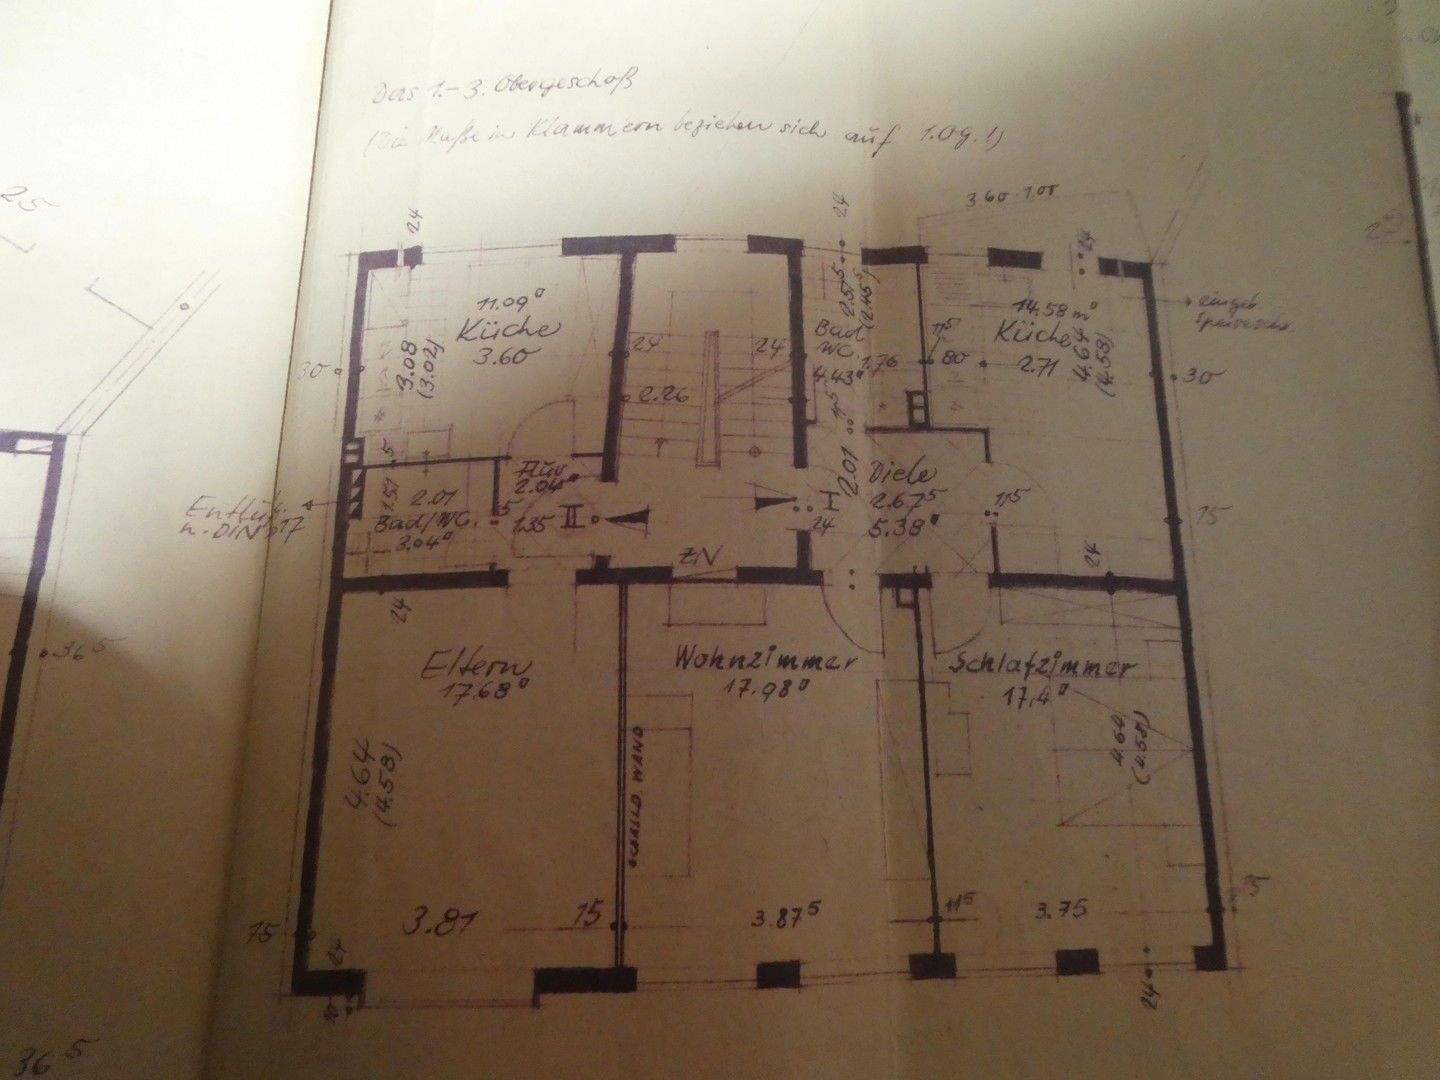 Das 1.-3. Obergeschoß
(Die Maße in Klammern beziehen sich auf 1.OG.!)
25
3.60·1.00
24
24
24
11.09□
Küche
3.60
3.08
(3.02)
30
24
24
2.26
2.51⁵
(2.45⁵)
Bad
WC.
4.43□
1.76
11⁵
80
14.58 m□
Küche
2.71
4.64
(4.58)
eingeb.
Speiseschr.
30
11⁵
5
1.51
2.01
Bad/WC.
3.04□
Flur
2.04□
5
1.35
II
Entlüft.
n. DIN
17
ZN
I
24
2.01
Diele
2.67⁵
5.38□
11⁵
15
24
24
36⁵
Eltern
17.68□
Wohnzimmer
17.98□
Schlafzimmer
17,4□
4.64
(4.58)
SCHALLD. WAND
4.64
(4.58)
15
3.81
15
3.87⁵
11⁵
3.75
15
24
24
36⁵